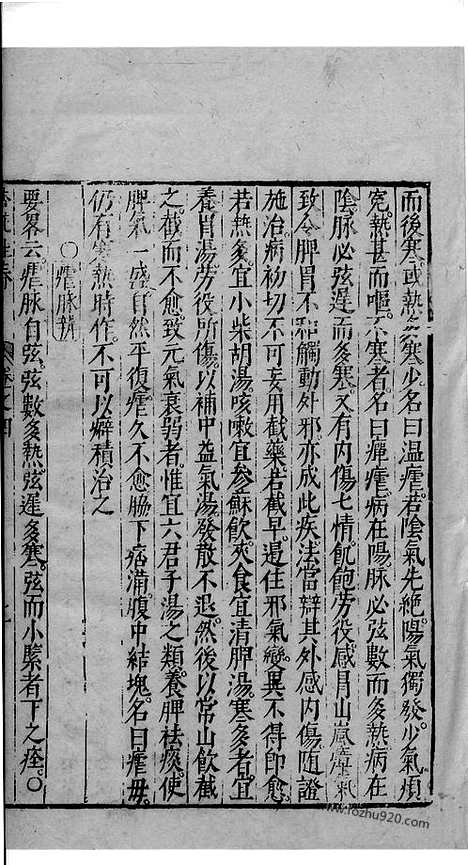 而後寒或熱多寒少名曰温瘧若陰氣先絕陽氣獨發少氣煩
冤熱甚而嘔不寒者名曰癉瘧病在陽脉必弦數而多熱病在
陰脉必弦遲而多寒又有内傷七情飢飽劳役感冒山嵐瘴氣
致令脾胃不和觸動外邪亦成此疾法當辯其外感内傷随證
施治病初切不可妄用截藥若截早遏住邪氣變異不得即愈
若熱多宜小柴胡湯咳嗽宜參蘇飲夾食宜清脾湯寒多者宜
養胃湯劳役所傷以補中益氣湯發散不退然後以常山飲截
之截而不愈致元氣衰弱者惟宜六君子湯之類養脾祛痰使
脾氣一盛自然平復瘧久不愈脇下痞滿腹中結塊名曰瘧母
仍有寒熱時作不可以癖積治之
○瘧脉辨
要畧云瘧脉自弦弦數多熱弦遲多寒弦而小緊者下之痊○
卷之四
www.fozhu920.com